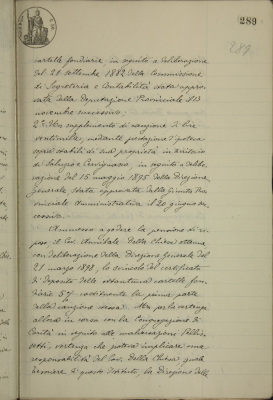 289
289.
cartelle fondiarie, in seguito a deliberazione
del 21 settembre 1882 della Commissione
di Segreteria e Contabilità stata appro-
vata dalla Deputazione Provinciale il 13
novembre successivo;
2° Un supplemento di cauzione di lire
ventimila, mediante prestazione d'ipoteca
sopra stabili di sua proprietà in territorio
di Saluzzo e Cervignasco, in seguito a delibe-
razione del 15 maggio 1895 della Direzione
Generale stata approvata dalla Giunta Pro-
vinciale Amministrativa il 20 giugno suc-
cessivo.
Ammesso a godere la pensione di ri-
poso il Cav. Annibale Della Chiesa ottenne
con deliberazione della Direzione Generale del
21 marzo 1898, lo svincolo del certificato
di deposito delle ottantuna cartelle fon-
diarie 5% costituente la prima parte
della cauzione stessa. Ma per la vertenza
allora in corso con la Congregazione di
Carità in seguito alle malversazioni
vertenza che poteva implicare una
responsabilità del Cav. Della Chiesa quale
di questo Istituto, la Direzione dell'